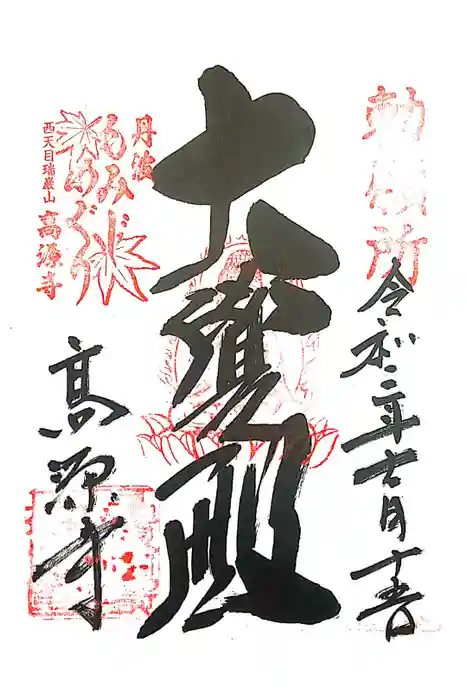 勅願所
令和二年十一月
大覺殿
丹波
もみじめぐり
西天目瑞巌山 高源寺
高源寺